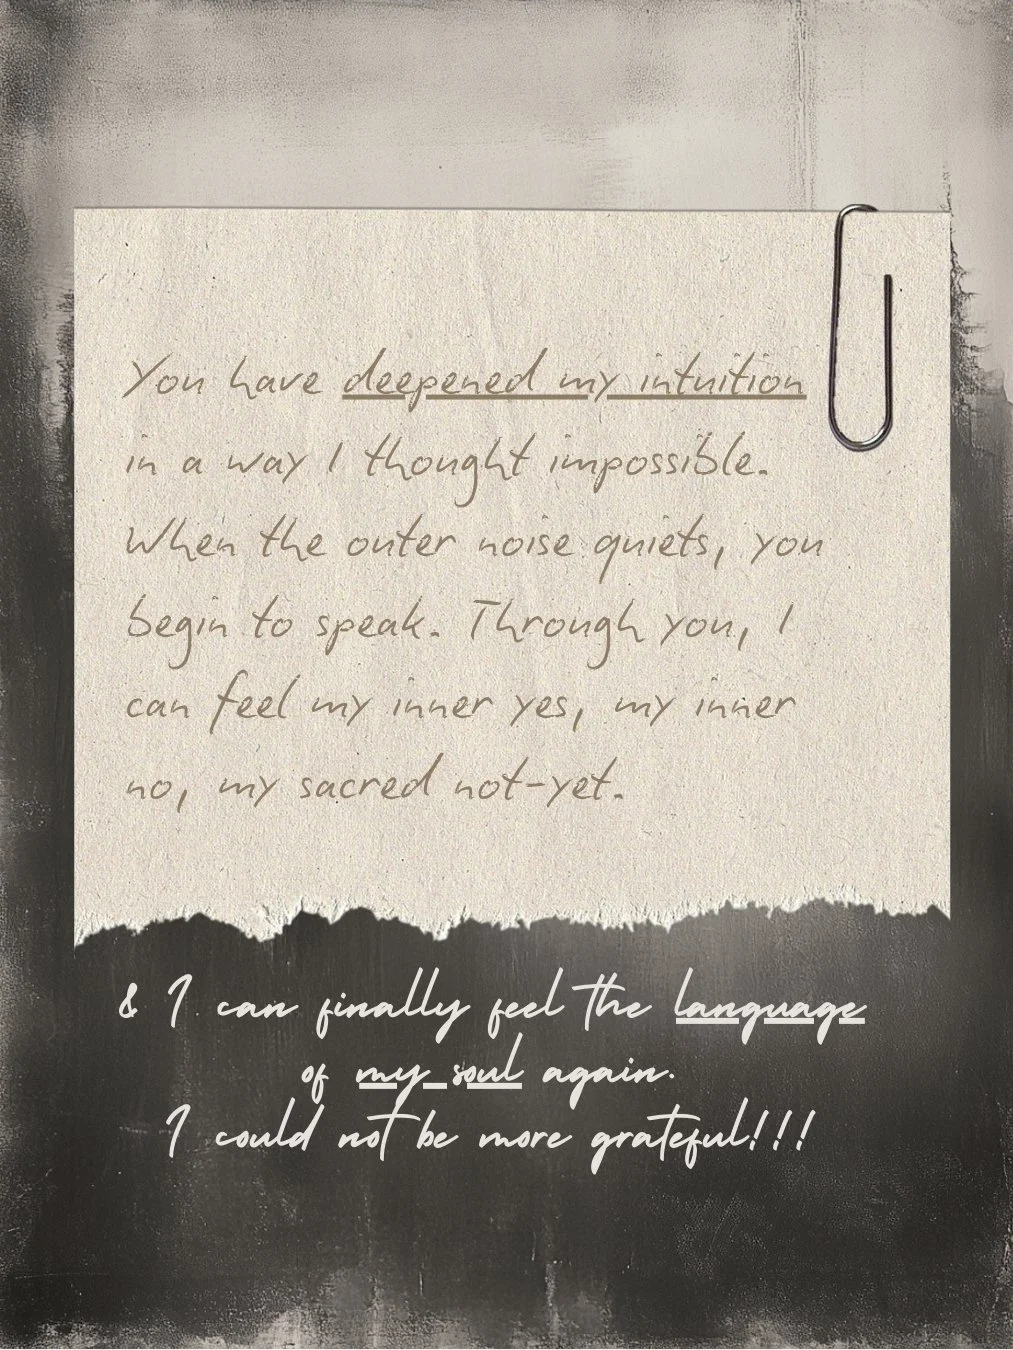 You have deepened my intuition
in a way I thought impossible.
When the outer noise quiets, you
begin to speak. Through you, I
can feel my inner yes, my inner
no, my sacred not-yet.
& I can finally feel the language
of my soul again.
I could not be more grateful!!!